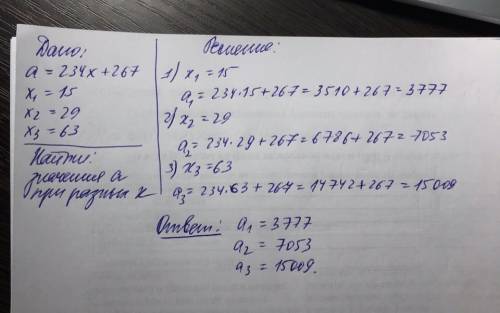 Дано:
a = 234x + 267
x₁ = 15
x₂ = 29
x₃ = 63
Найти:
значения a
при разных x
Решение:
1) x₁ = 15
a₁ = 234·15 + 267 = 3510 + 267 = 3777
2) x₂ = 29
a₂ = 234·29 + 267 = 6786 + 267 = 7053
3) x₃ = 63
a₃ = 234·63 + 267 = 14742 + 267 = 15009
Ответ: a₁ = 3777
a₂ = 7053
a₃ = 15009.